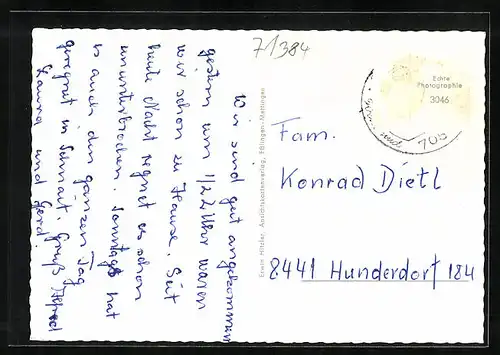 71384
Wir sind gut angekommen
gestern um 1/2 2 Uhr waren
wir schon zu Hause. Seit
heute Nacht regnet es schon
ununterbrochen. Sonntags hat
es auch den ganzen Tag
geregnet in Schnait. Gruß Alfred
Laura und Gerd.
Erwin Hitzler, Ansichtskartenverlag, Eßlingen-Mettingen
Echte
Photographie
3046
706
Fam.
Konrad Dietl
8441 Hunderdorf 184